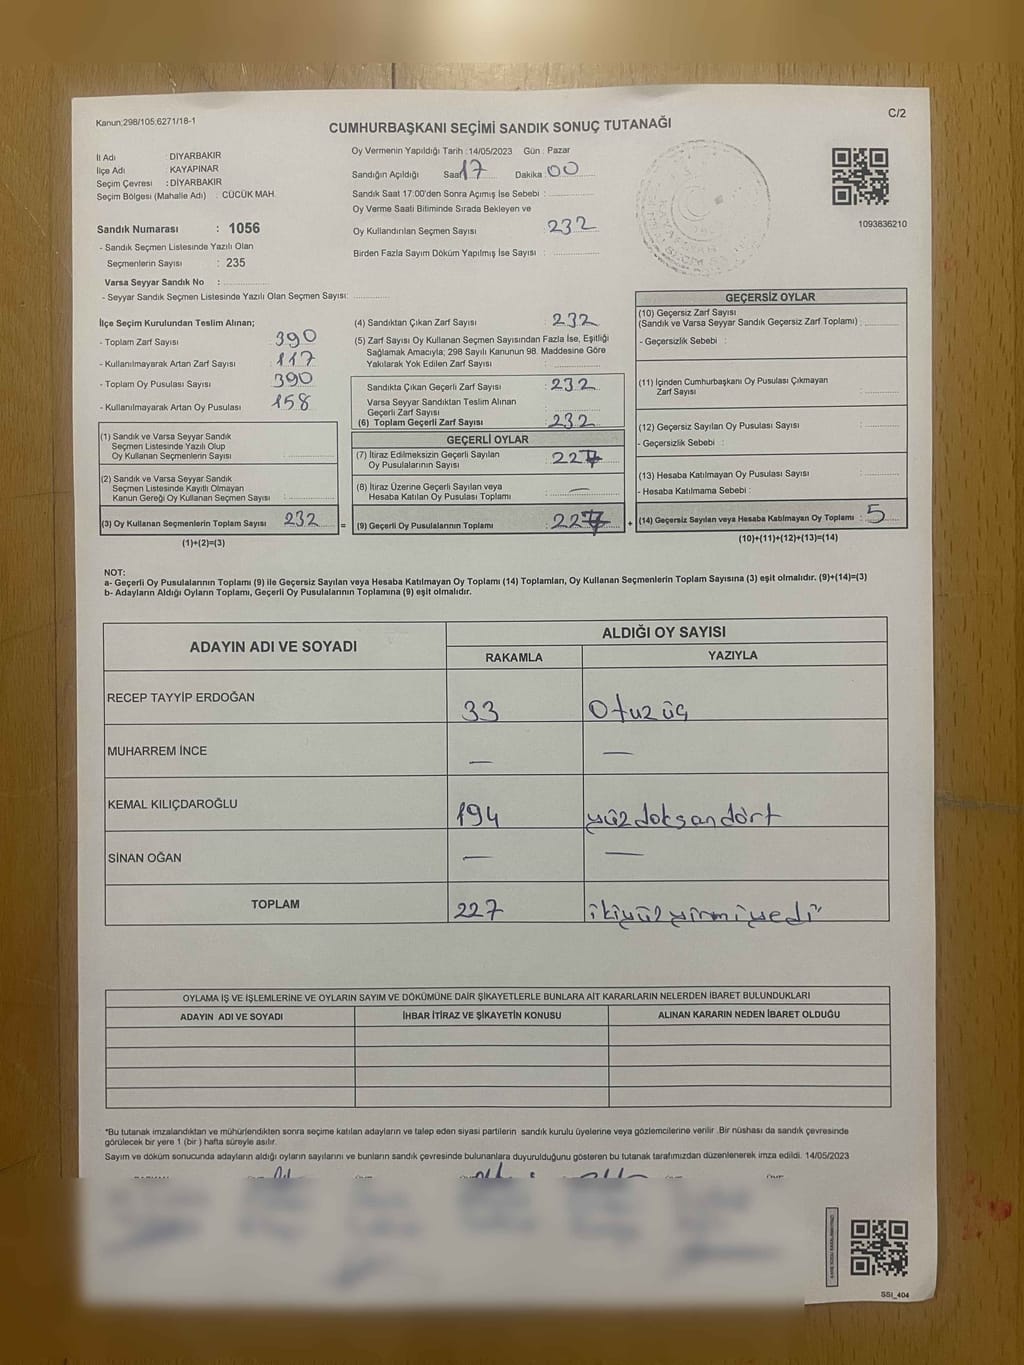 Kanun:298/105,6271/18-1
C/2
CUMHURBAŞKANI SEÇİMİ SANDIK SONUÇ TUTANAĞI
İl Adı : DİYARBAKIR
İlçe Adı : KAYAPINAR
Seçim Çevresi : DİYARBAKIR
Seçim Bölgesi (Mahalle Adı) : CÜCÜK MAH.
Sandık Numarası : 1056
- Sandık Seçmen Listesinde Yazılı Olan
Seçmenlerin Sayısı : 235
Varsa Seyyar Sandık No :
- Seyyar Sandık Seçmen Listesinde Yazılı Olan Seçmen Sayısı:
Oy Vermenin Yapıldığı Tarih : 14/05/2023 Gün : Pazar
Sandığın Açıldığı Saat 17 Dakika : 00
Sandık Saat 17:00'den Sonra Açımış İse Sebebi :
Oy Verme Saati Bitiminde Sırada Bekleyen ve
Oy Kullandırılan Seçmen Sayısı : 232
Birden Fazla Sayım Döküm Yapılmış İse Sayısı :
1093836210
İlçe Seçim Kurulundan Teslim Alınan;
- Toplam Zarf Sayısı 390
- Kullanılmayarak Artan Zarf Sayısı 117
- Toplam Oy Pusulası Sayısı 390
- Kullanılmayarak Artan Oy Pusulası 158
(1) Sandık ve Varsa Seyyar Sandık
Seçmen Listesinde Yazılı Olup
Oy Kullanan Seçmenlerin Sayısı :
(2) Sandık ve Varsa Seyyar Sandık
Seçmen Listesinde Kayıtlı Olmayan
Kanun Gereği Oy Kullanan Seçmen Sayısı :
(3) Oy Kullanan Seçmenlerin Toplam Sayısı 232 =
(1)+(2)=(3)
(4) Sandıktan Çıkan Zarf Sayısı : 232
(5) Zarf Sayısı Oy Kullanan Seçmen Sayısından Fazla İse, Eşitliği
Sağlamak Amacıyla; 298 Sayılı Kanunun 98. Maddesine Göre
Yakılarak Yok Edilen Zarf Sayısı :
Sandıkta Çıkan Geçerli Zarf Sayısı : 232
Varsa Seyyar Sandıktan Teslim Alınan
Geçerli Zarf Sayısı :
(6) Toplam Geçerli Zarf Sayısı : 232
GEÇERLİ OYLAR
(7) İtiraz Edilmeksizin Geçerli Sayılan
Oy Pusulalarının Sayısı : 227
(8) İtiraz Üzerine Geçerli Sayılan veya
Hesaba Katılan Oy Pusulası Toplamı : —
(9) Geçerli Oy Pusulalarının Toplamı : 227 +
GEÇERSİZ OYLAR
(10) Geçersiz Zarf Sayısı
(Sandık ve Varsa Seyyar Sandık Geçersiz Zarf Toplamı) :
- Geçersizlik Sebebi :
(11) İçinden Cumhurbaşkanı Oy Pusulası Çıkmayan
Zarf Sayısı :
(12) Geçersiz Sayılan Oy Pusulası Sayısı :
- Geçersizlik Sebebi :
(13) Hesaba Katılmayan Oy Pusulası Sayısı :
- Hesaba Katılmama Sebebi :
(14) Geçersiz Sayılan veya Hesaba Katılmayan Oy Toplamı : 5
(10)+(11)+(12)+(13)=(14)
NOT:
a- Geçerli Oy Pusulalarının Toplamı (9) ile Geçersiz Sayılan veya Hesaba Katılmayan Oy Toplamı (14) Toplamları, Oy Kullanan Seçmenlerin Toplam Sayısına (3) eşit olmalıdır. (9)+(14)=(3)
b- Adayların Aldığı Oyların Toplamı, Geçerli Oy Pusulalarının Toplamına (9) eşit olmalıdır.
ADAYIN ADI VE SOYADI
ALDIĞI OY SAYISI
RAKAMLA YAZIYLA
RECEP TAYYİP ERDOĞAN 33 Otuz üç
MUHARREM İNCE — —
KEMAL KILIÇDAROĞLU 194 yüzdoksandört
SİNAN OĞAN — —
TOPLAM 227 ikiyüzyirmiyedi
OYLAMA İŞ VE İŞLEMLERİNE VE OYLARIN SAYIM VE DÖKÜMÜNE DAİR ŞİKAYETLERLE BUNLARA AİT KARARLARIN NELERDEN İBARET BULUNDUKLARI
ADAYIN ADI VE SOYADI İHBAR İTİRAZ VE ŞİKAYETİN KONUSU ALINAN KARARIN NEDEN İBARET OLDUĞU
*Bu tutanak imzalandıktan ve mühürlendikten sonra seçime katılan adayların ve talep eden siyasi partilerin sandık kurulu üyelerine veya gözlemcilerine verilir .Bir nüshası da sandık çevresinde
görülecek bir yere 1 (bir ) hafta süreyle asılır.
Sayım ve döküm sonucunda adayların aldığı oyların sayılarını ve bunların sandık çevresinde bulunanlara duyurulduğunu gösteren bu tutanak tarafımızdan düzenlenerek imza edildi. 14/05/2023
SSI_404